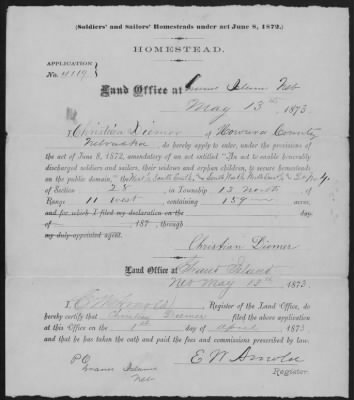 (Soldiers' and Sailors' Homesteads under act June 8, 1872.)
HOMESTEAD.
APPLICATION
No. 4119
Land Office at Grand Island Neb
May 13th 1873
I Christian Diemer of Howard County
Nebraska, do hereby apply to enter, under the provisions of
the act of June 8, 1872, amendatory of an act entitled "An act to enable honorably
discharged soldiers and sailors, their widows and orphan children, to secure homesteads
on the public domain,"
of Section 28 in Township 13 North of
Range 11 West, containing 159 acres,
and for which I filed my declaration on the day
of 187 , through
my duly-appointed agent.
Christian Diemer
Land Office at Grand Island
Neb May 13th 1873
I E W Arnold, Register of the Land Office, do
hereby certify that Christian Diemer filed the above application
at this Office on the 1st day of April, 1873
and that he has taken the oath and paid the fees and commissions prescribed by law.
E W Arnold
Register.
P O
Grand Island
Neb